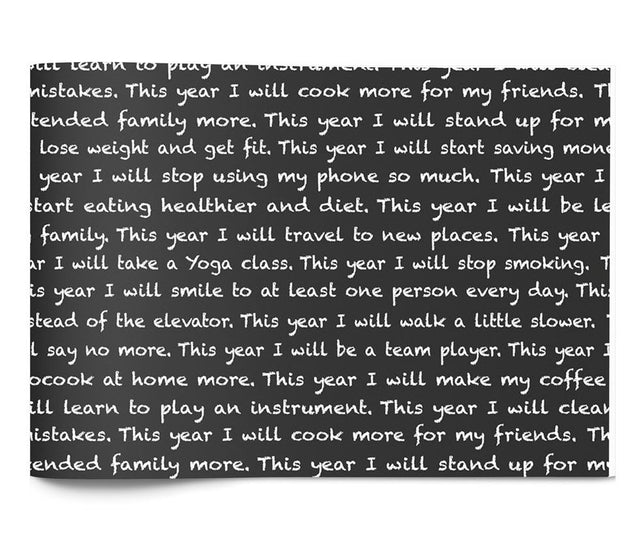 will learn to play an instrument. This year I will clean
mistakes. This year I will cook more for my friends. Th
tended family more. This year I will stand up for m
lose weight and get fit. This year I will start saving mone
year I will stop using my phone so much. This year I
start eating healthier and diet. This year I will be le
family. This year I will travel to new places. This year
ar I will take a Yoga class. This year I will stop smoking. T
is year I will smile to at least one person every day. This
stead of the elevator. This year I will walk a little slower. T
l say no more. This year I will be a team player. This year I
ocook at home more. This year I will make my coffee
ill learn to play an instrument. This year I will clean
istakes. This year I will cook more for my friends. Th
tended family more. This year I will stand up for my